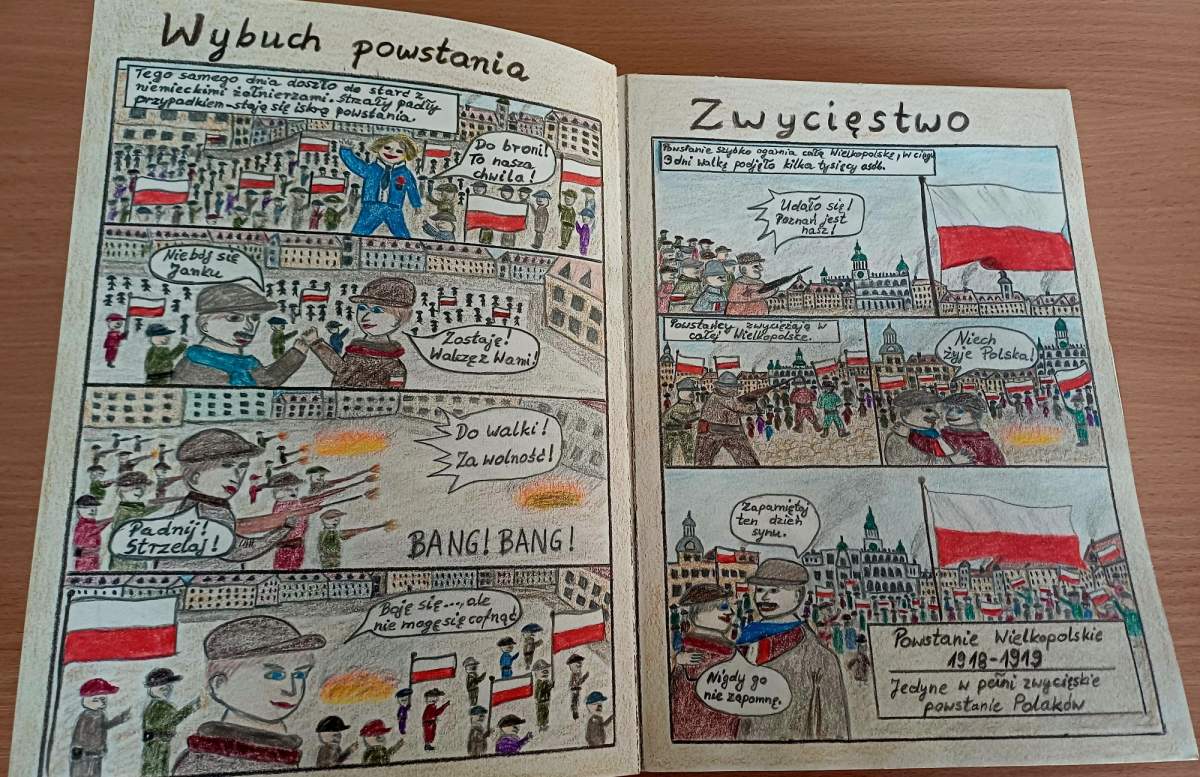 Wybuch powstania
Tego samego dnia doszło do starć z
niemieckimi żołnierzami. Strzały padły
przypadkiem - stają się iskrą powstania.
Do broni!
To nasza
chwila!
Nie bój się
Janku
Zostaję!
Walczę z Wami!
Do walki!
Za wolność!
Padnij!
Strzelaj!
BANG! BANG!
Boję się..., ale
nie mogę się cofnąć
Zwycięstwo
Powstanie szybko ogarnia całą Wielkopolskę, w ciągu
3 dni walkę podjęło kilka tysięcy osób.
Udało się!
Poznań jest
nasz!
Powstańcy zwyciężają w
całej Wielkopolsce.
Niech
żyje Polska!
Zapamiętaj
ten dzień
synu.
Nigdy go
nie zapomnę.
Powstanie Wielkopolskie
1918-1919
Jedyne w pełni zwycięskie
powstanie Polaków